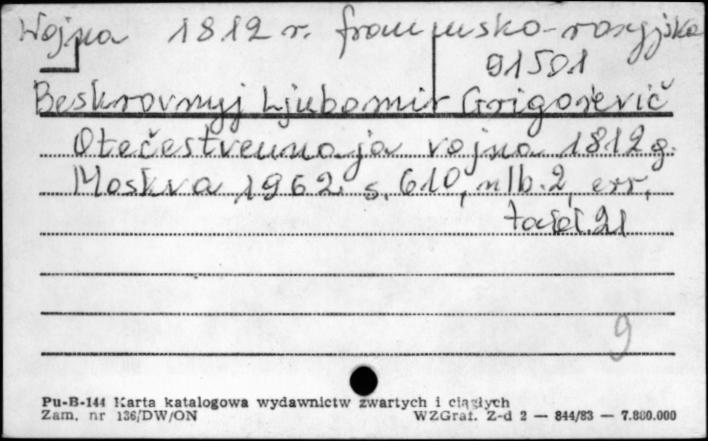 Wojna 1812 r. francusko-rosyjska
91501
Beskrovnyj Ljubomir Grigor'evič
Otečestvennaja vojna 1812 g.
Moskva 1962. s. 610, nlb. 2, err,
tabl. 21
9
Pu-B-144 Karta katalogowa wydawnictw zwartych i ciągłych
Zam. nr 136/DW/ON WZGraf. Z-d 2 — 844/83 — 7.880.000